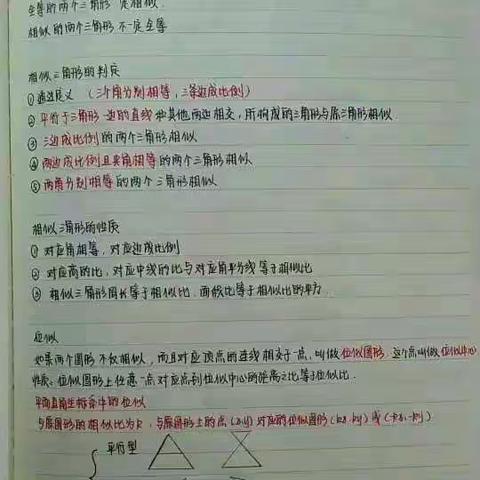 全等的两个三角形一定相似.
相似的两个三角形不一定全等
相似三角形的判定
① 通过定义 (三个角分别相等,三条边成比例)
② 平行于三角形一边的直线和其他两边相交,所构成的三角形与原三角形相似
③ 三边成比例的两个三角形相似
④ 两边成比例且夹角相等的两个三角形相似
⑤ 两角分别相等的两个三角形相似
相似三角形的性质
① 对应角相等,对应边成比例
② 对应高的比,对应中线的比与对应角平分线等于相似比
③ 相似三角形周长等于相似比,面积比等于相似比的平方.
位似
如果两个图形不仅相似,而且对应顶点的连线相交于一点,叫做位似图形.这个点叫做位似中心
性质:位似图形上任意一点对应点到位似中心的距离之比等于位似比.
平面直角坐标系中的位似
与原图形的相似比为k,与原图形上的点(x,y)对应的位似图形(kx,ky)或(-kx,-ky)
平行型